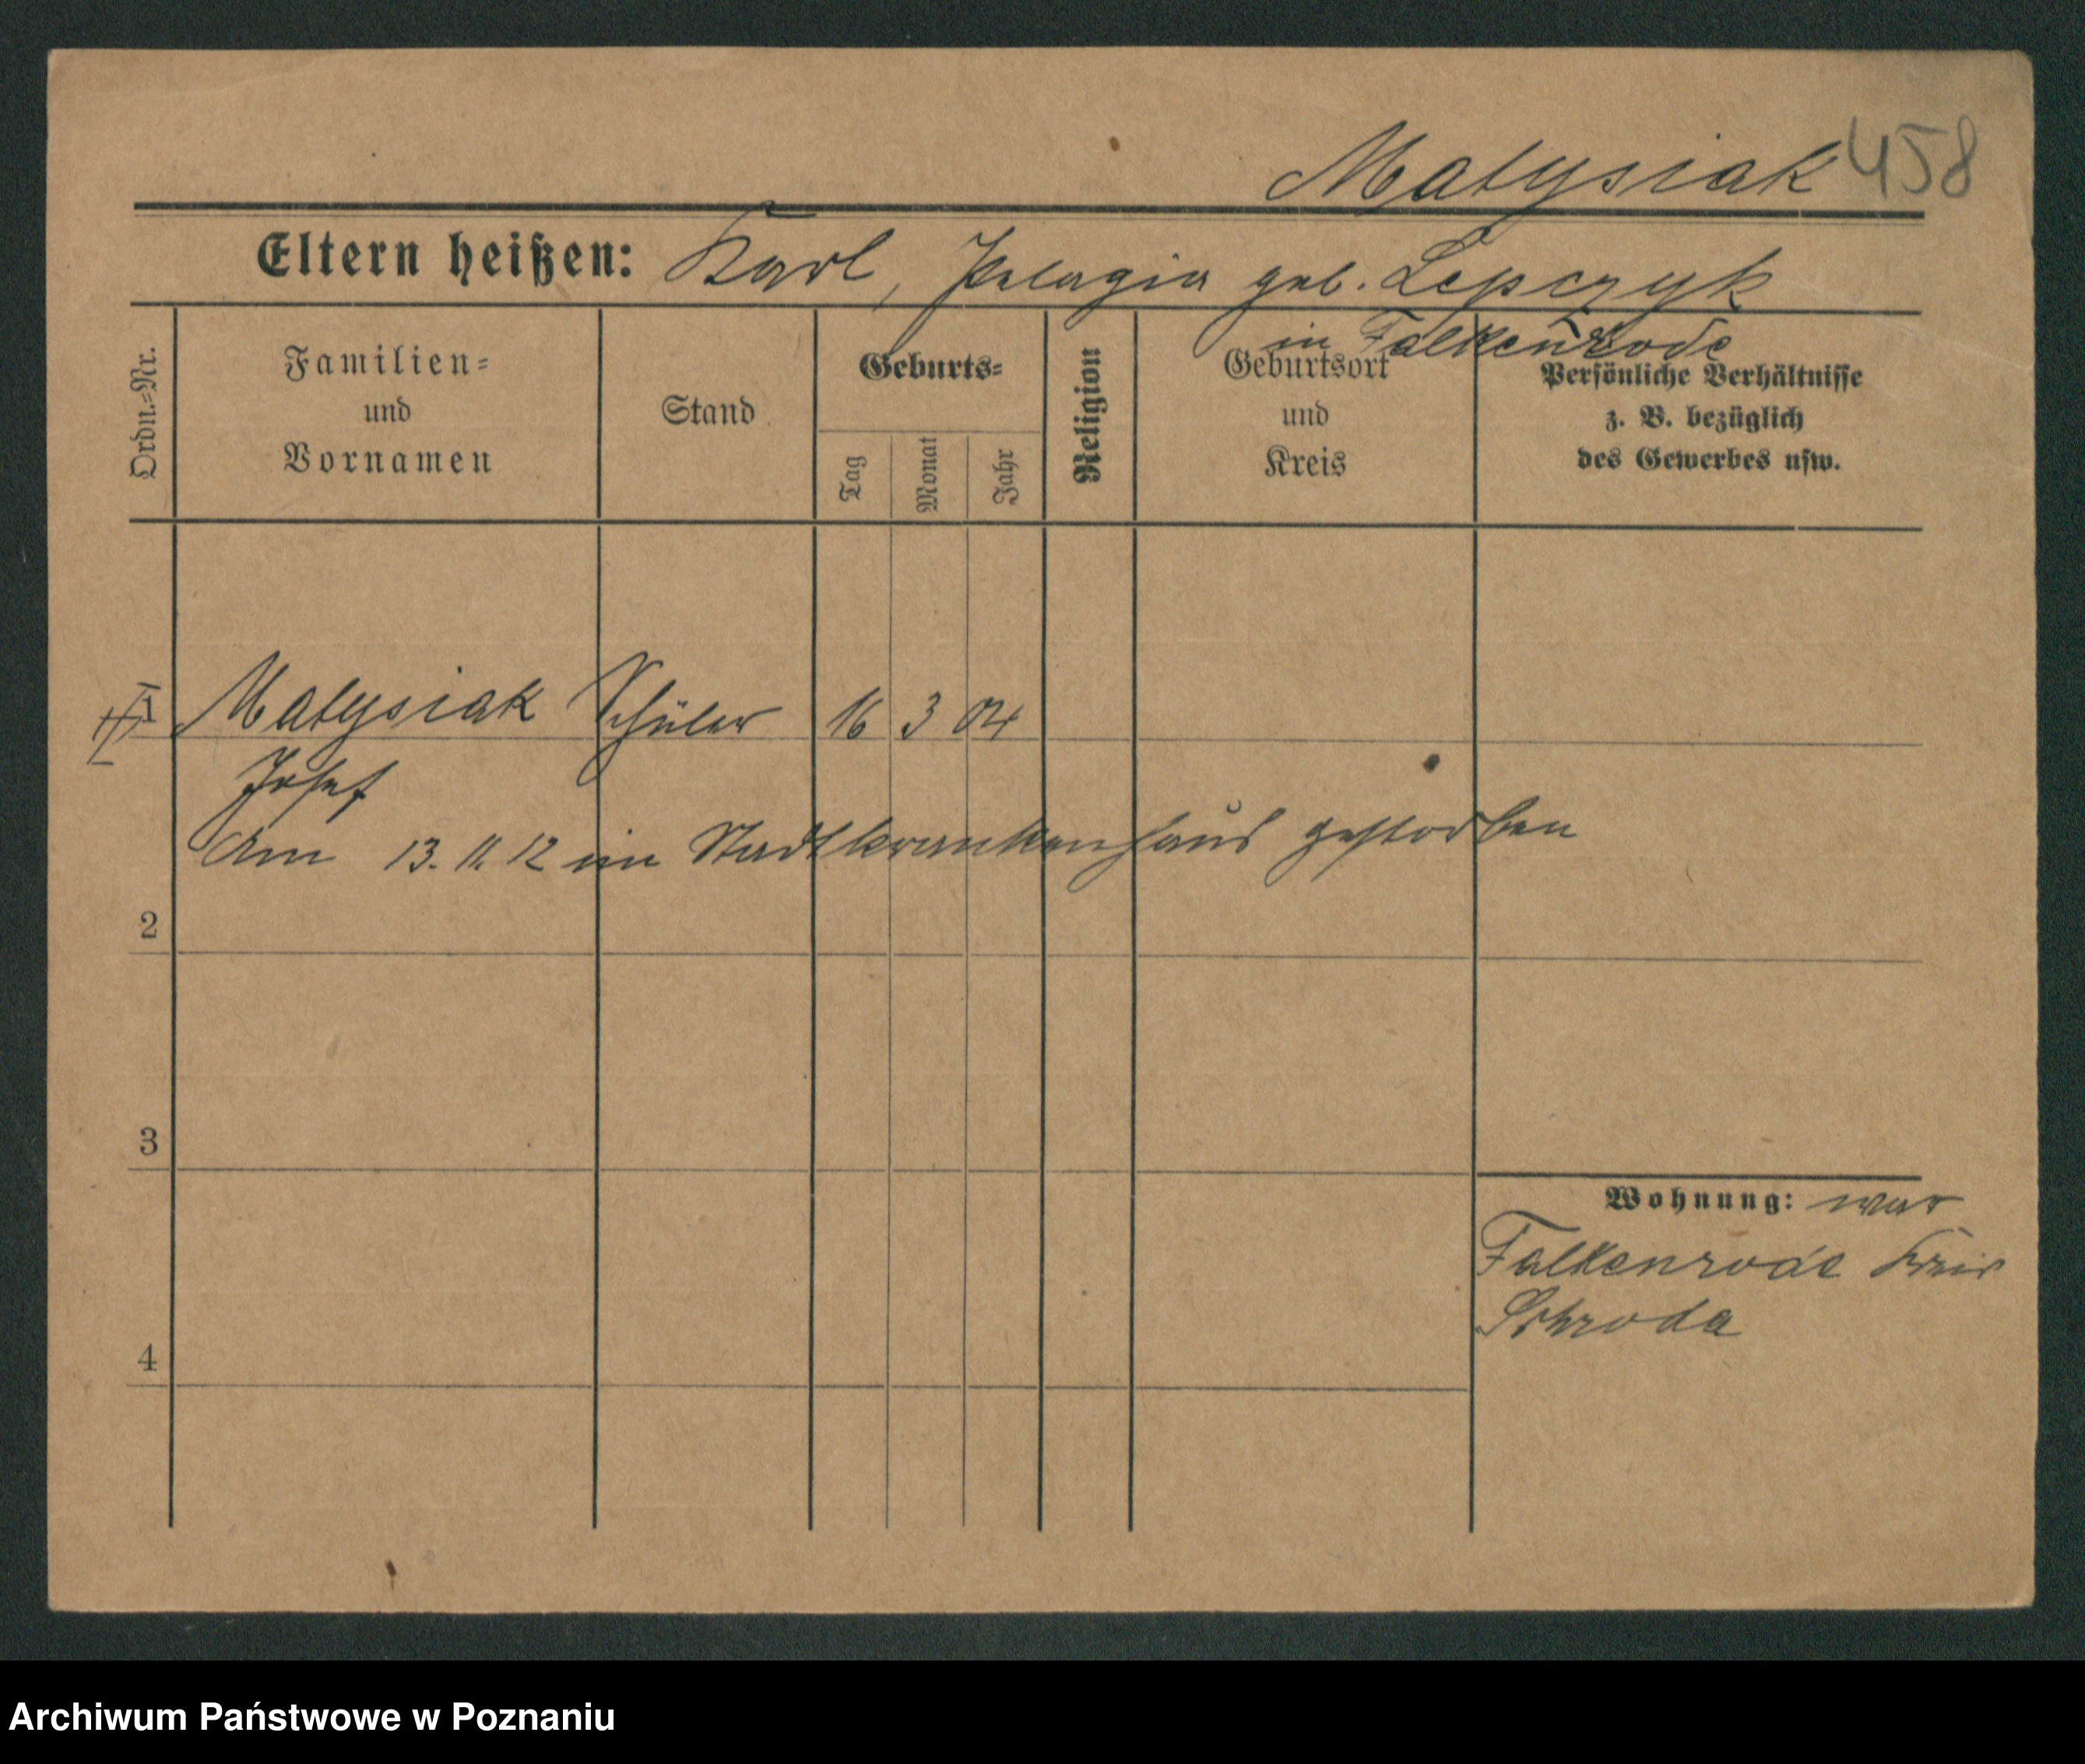 Matysiak 458
Eltern heißen: Karl, Pelagia geb. Lepczyk
in Falkenrode
Ordn.-Nr.
Familien-
und
Vornamen
Stand
Geburts-
Tag
Monat
Jahr
Religion
Geburtsort
und
Kreis
Persönliche Verhältnisse
z. B. bezüglich
des Gewerbes usw.
1 Matysiak Schüler 16 3 04
Josef
Am 13. 11. 12 im Stadtkrankenhaus gestorben
2
3
Wohnung: war
Falkenrode Kreis
Schroda
4
Archiwum Państwowe w Poznaniu